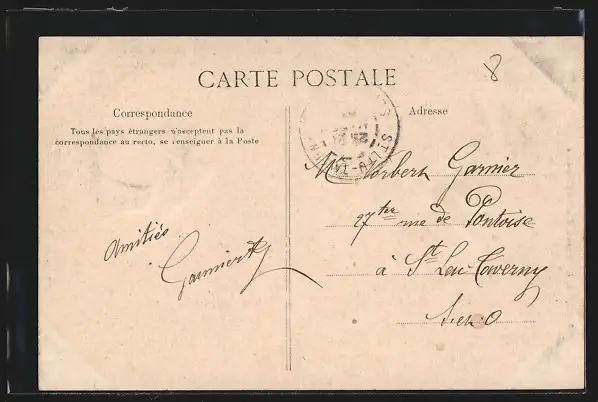 8
CARTE POSTALE
Correspondance
Tous les pays étrangers n'acceptent pas la
correspondance au recto, se renseigner à la Poste
Amitiés
Garnier
Adresse
ST LEU-TA
M Norbert Garnier
27 ter rue de Pontoise
à St Leu-Taverny
S. et. O